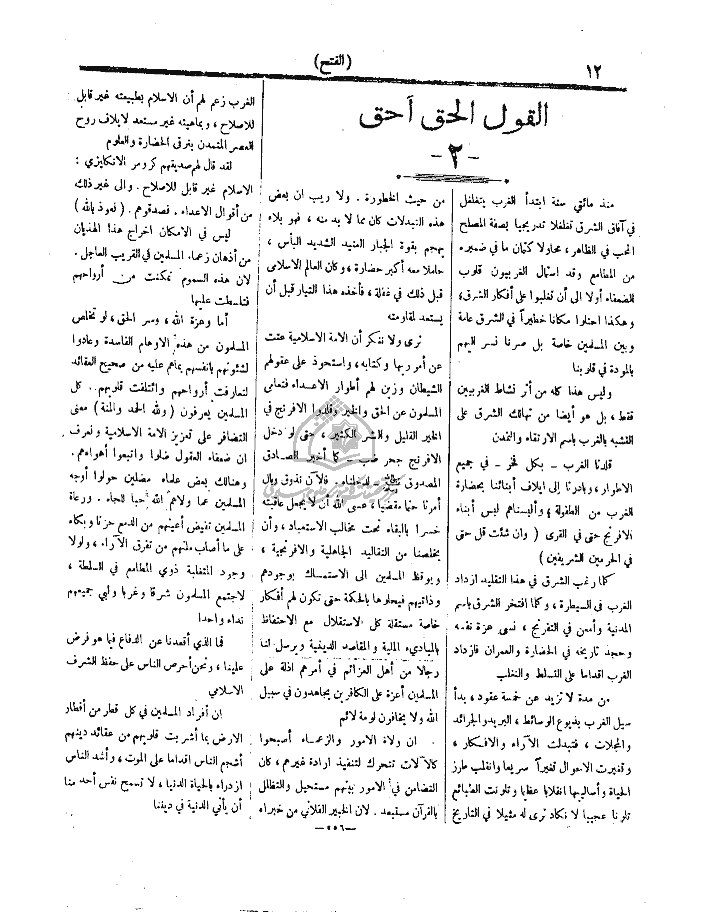 ١٢
(الفتح)
القول الحق أحق
- ٢ -
منذ مائتي سنة ابتدأ الغرب يتغلغل
في آفاق الشرق تغلغلا تدريجيا بصفة المصلح
المحب في الظاهر ، محاولا كتمان ما في ضميره
من المطامع وقد استمال الغربيون قلوب
الضعفاء أولا الى أن تغلبوا على أفكار الشرق ؛
وهكذا احتلوا مكانا خطيراً في الشرق عامة
وبين المسلمين خاصة بل صرنا نسر اليهم
بالمودة في قلوبنا
وليس هذا كله من أثر نشاط الغربيين
فقط ، بل هو أيضا من تهالك الشرق على
التشبه بالغرب باسم الارتقاء والتمدن
قلدنا الغرب - بكل فخر - في جميع
الاطوار ، وبادرنا إلى ايلاف أبنائنا بحضارة
الغرب من الطفولة ؛ وألبسناهم لبس أبناء
الافرنج حتى في القرى ( وان شئت قل حتى
في الحرمين الشريفين )
كما رغب الشرق في هذا التقليد ازداد
الغرب في السيطرة ، وكما افتخر الشرق باسم
المدنية وأمعن في التفرنج ، نسي عزة نفسه
وجحد تاريخه في الحضارة والعمران فازداد
الغرب اقداما على التسلط والتغلب
من مدة لا تزيد عن خمسة عقود ، بدأ
سيل الغرب بذيوع الوسائط ، البريد والجرائد
والمجلات ، فتبدلت الآراء والافكار ،
وتغيرت الاحوال تغيراً سريعا وانقلب طرز
الحياة وأساليبها انقلابا عظيما وتلونت الطبائع
تلونا عجيبا لا نكاد نرى له مثيلا في التاريخ
من حيث الخطورة . ولا ريب ان بعض
هذه التبدلات كان مما لا بد منه ، فهو بلاء
يهجم بقوة الجبار العنيد الشديد البأس ،
حاملا معه أكبر حضارة ، وكان العالم الاسلامى
قبل ذلك في غفلة ، فأخذه هذا التيار قبل أن
يستعد لمقاومته
نرى ولا ننكر أن الامة الاسلامية عتت
عن أمر ربها وكتابه ، واستحوذ على عقولهم
الشيطان وزين لهم أطوار الاعداء فتعامى
المسلمون عن الحق والخير وقلدوا الافرنج في
الخير القليل والشر الكثير ، حتى لو دخل
الافرنج جحر ضب - كما أخبر الصادق
المصدوق ﷺ - لدخلناه . فالآن نذوق وبال
أمرنا حتما مقضيا ، عسى الله أن لا يجعل عاقبته
خسرا بالبقاء تحت مخالب الاستعباد ، وأن
يخلصنا من التقاليد الجاهلية والافرنجية ،
ويوقظ المسلمين الى الاستمساك بوجودهم
وذاتيهم فيحلوها بالحكمة حتى تكون لهم أفكار
خاصة مستقلة كل الاستقلال مع الاحتفاظ
بالمباديء الملية والمقاصد الدينية ويرسل لنا
رجالا من أهل العزائم في أمرهم اذلة على
المسلمين أعزة على الكافرين يجاهدون في سبيل
الله ولا يخافون لومة لائم
ان ولاة الامور والزعماء أصبحوا
كالآلات تتحرك لتنفيذ ارادة غيرهم ، كان
التضامن في الامور بينهم مستحيل والتظلل
بالقرآن مستبعد . لان الخبير الفلاني من خبراء
الغرب زعم لهم أن الاسلام بطبيعته غير قابل
للاصلاح ، وبماهيته غير مستعد لايلاف روح
العصر المتمدن بترقي الحضارة والعلوم
لقد قال لهم صديقهم كرومر الانكليزي :
الاسلام غير قابل للاصلاح . والى غير ذلك
من أقوال الاعداء . فصدقوهم . ( نعوذ بالله )
ليس في الامكان اخراج هذا الهذيان
من أذهان زعماء المسلمين في القريب العاجل .
لان هذه السموم تمكنت من أرواحهم
فتسلطت عليها
أما وعزة الله ، وسر الحق ، لو تخلص
المسلمون من هذه الاوهام الفاسدة وعادوا
لشئونهم بانفسهم بما هم عليه من صحيح العقائد
لتعارفت أرواحهم وائتلفت قلوبهم . كل
المسلمين يعرفون ( ولله الحمد والمنة ) معنى
التضافر على تعزيز الامة الاسلامية ونعرف
ان ضعفاء العقول ضلوا واتبعوا أهواءهم .
وهنالك بعض علماء مضلين حولوا أوجه
المسلمين عما ولاهم الله حبا للجاه . ورعاة
المسلمين تفيض أعينهم من الدمع حزنا وبكاء
على ما أصاب ملتهم من تفرق الآراء ، ولولا
وجود المتغلبة ذوي المطامع في السلطة ،
لاجتمع المسلمون شرقا وغربا ولبي جميعهم
نداء واحدا
فما الذي أقعدنا عن الدفاع فيما هو فرض
علينا ، ونحن أحرص الناس على حفظ الشرف
الاسلامي
ان أفراد المسلمين في كل قطر من أقطار
الارض بما أشربت قلوبهم من عقائد دينهم
أشجم الناس اقداما على الموت ، وأشد الناس
ازدراء بالحياة الدنيا ، لا تسمح نفس أحد منا
أن يأتي الدنية في ديننا
-٢٥٦-